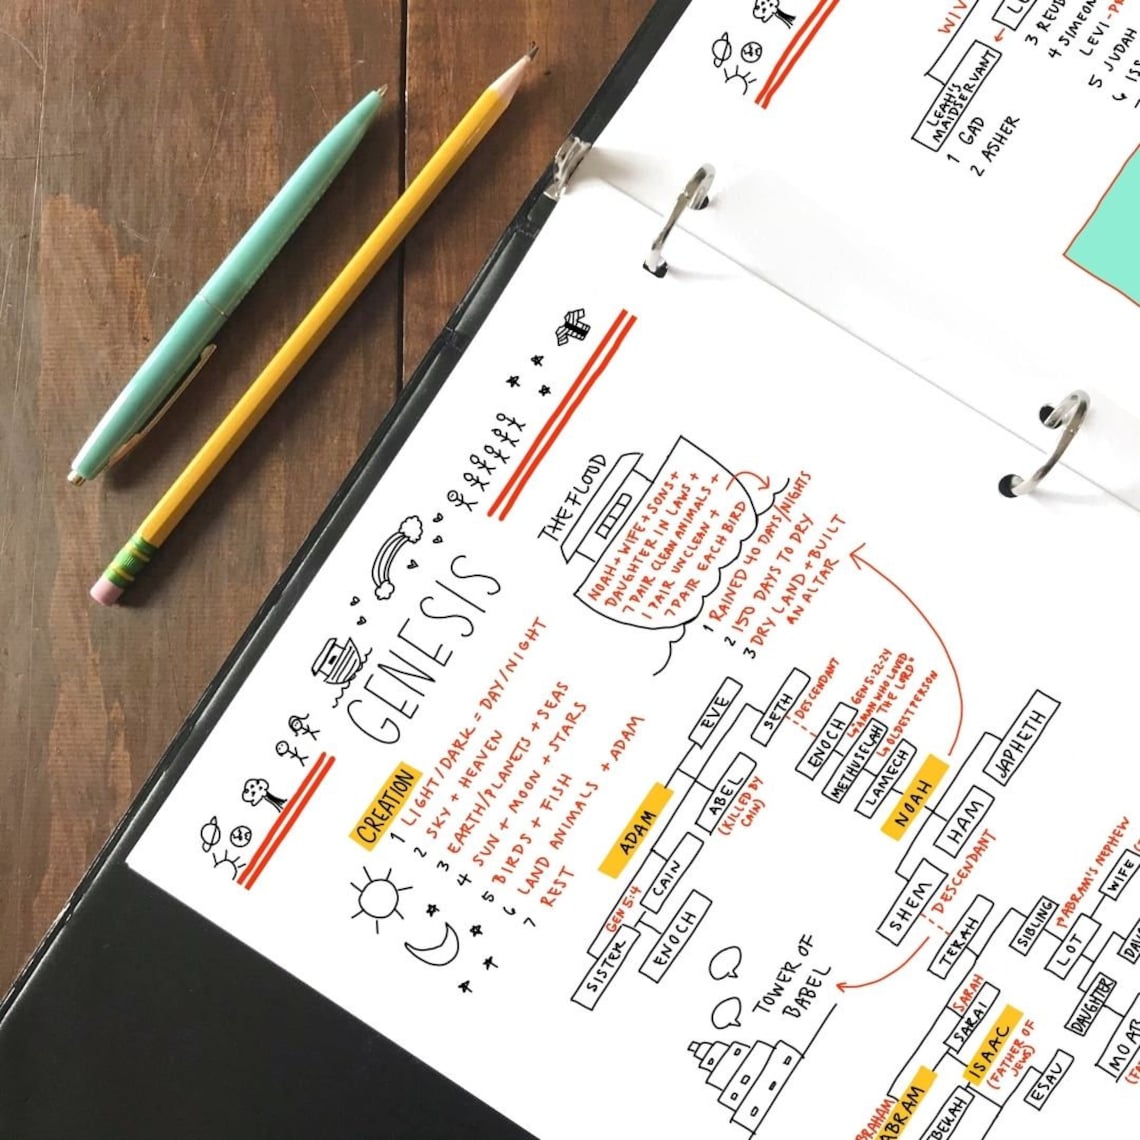 LEAH'S
MAIDSERVANT
1 GAD
2 ASHER
3
4 SIMEON
LEVI-
5 JUDAH
6
GENESIS
CREATION
1 LIGHT/DARK = DAY/NIGHT
2 SKY + HEAVEN
3 EARTH/PLANETS + SEAS
4 SUN + MOON + STARS
5 BIRDS + FISH
6 LAND ANIMALS + ADAM
7 REST
THE FLOOD
NOAH + WIFE + SONS +
DAUGHTER IN LAWS +
7 PAIR CLEAN ANIMALS +
1 PAIR UNCLEAN +
7 PAIR EACH BIRD
1 RAINED 40 DAYS/NIGHTS
2 150 DAYS TO DRY
3 DRY LAND + BUILT
AN ALTAR
ADAM
EVE
SETH
DESCENDANT
ABEL
(KILLED BY
CAIN)
CAIN
GEN 5:4
SISTER
ENOCH
ENOCH
GEN 5:22-24
"A MAN WHO LOVED
THE LORD"
METHUSELAH
OLDEST PERSON
LAMECH
NOAH
JAPHETH
HAM
SHEM
DESCENDANT
TERAH
TOWER OF
BABEL
SIBLING
ABRAM'S NEPHEW
LOT
WIFE
DAUGHTER
MOAB
SARAH
SARAI
ISAAC
(FATHER OF
JEWS)
ESAU